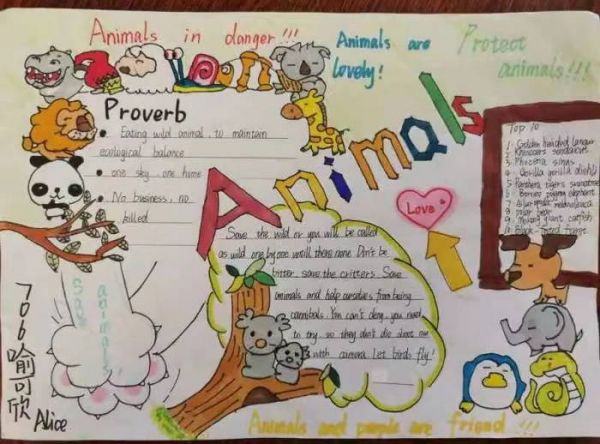 Animals in danger!!!
Animals are lovely!
Protect animals!!!
Proverb
Eating wild animal, to maintain
ecological balance
one sky one home
No business, no
killed
Animals
Love
Top 10
1. Golden headed langur
3. Phocoena sinus
4. Gorilla gorilla diehli
8. polar bear
9. Mekong giant catfish
Save the wild or you will be called
as wild one by one until there none Don't be
bitter, save the critters Save
animals and help ourselves from being
cannibals You can't deny you need
to try so they don't die shoot
with camera Let birds fly!
Save
animals!
706喻可欣
Alice
Animals and people are friend!!!